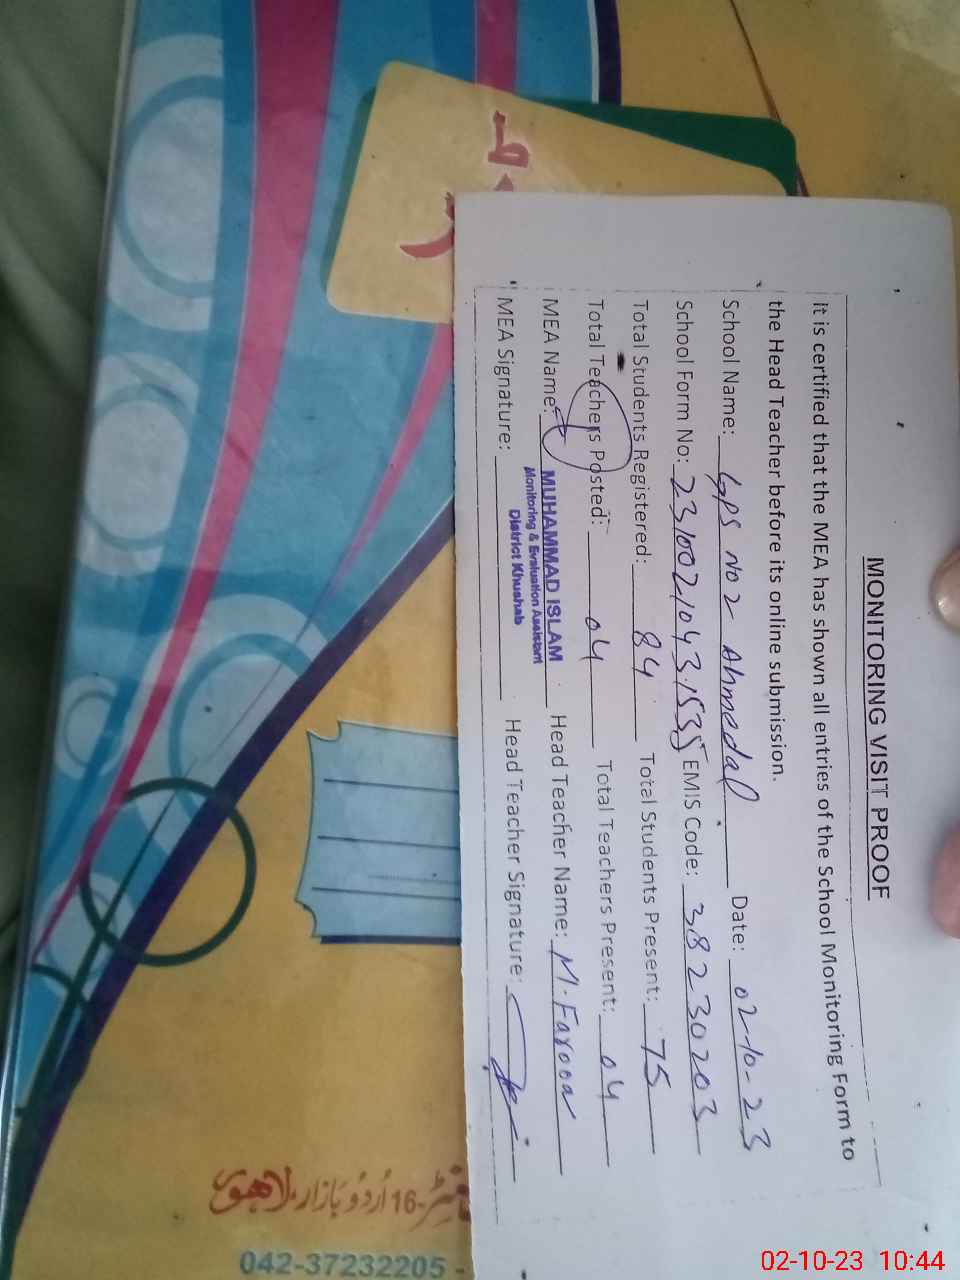 MONITORING VISIT PROOF
It is certified that the MEA has shown all entries of the School Monitoring Form to
the Head Teacher before its online submission.
School Name: GPS No 2 Ahmedal Date: 02-10-23
School Form No: 23100210431535 EMIS Code: 38230203
Total Students Registered: 84 Total Students Present: 75
Total Teachers Posted: 04 Total Teachers Present: 04
MEA Name: MUHAMMAD ISLAM Head Teacher Name: M. Farooq
Monitoring & Evaluation Assistant
District Khushab
MEA Signature: Head Teacher Signature:
16-اُردُو بَازار، لاہور
042-37232205 -
02-10-23 10:44